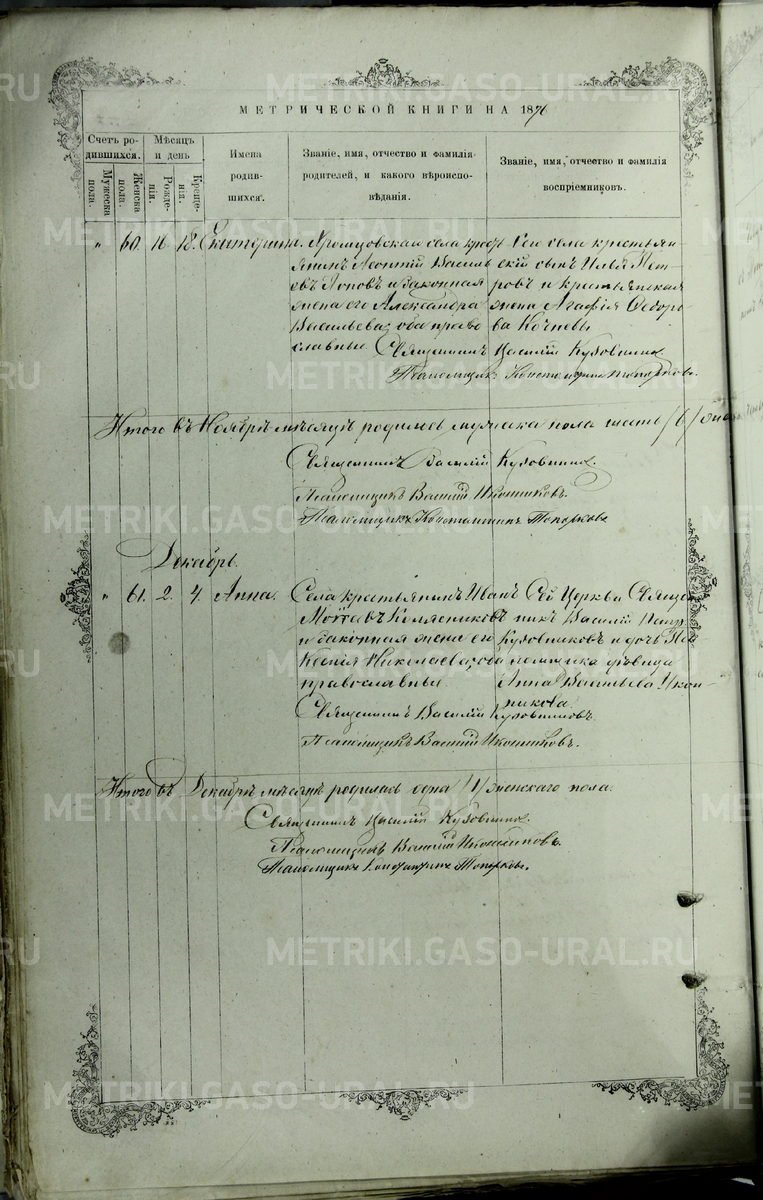 МЕТРИЧЕСКОЙ КНИГИ НА 1876
Счетъ родившихся.
Мужеска пола.
Женска пола.
Мѣсяцъ и день
Рожденія.
Крещенія.
Имена родившихся.
Званіе, имя, отчество и фамилія родителей, и какого вѣроисповѣданія.
Званіе, имя, отчество и фамилія воспріемниковъ.
" 60. 16 18. Екатерина. села кресть
янинъ Леонтій Василь
евъ Поповъ и законная
жена его Александра
Васильева; оба право
славные.
села крестьян
скій сынъ Илья Пет
ровъ и крестьянская
жена Агафія Ѳедоро
ва Кочневы
Священникъ Василій Кузовниковъ
Псаломщикъ Константинъ Топорковъ.
Итого въ Ноябрѣ мѣсяцѣ родилось мужска пола шесть /6/
Священникъ Василій Кузовниковъ.
Псаломщикъ Василій Иконниковъ.
Псаломщикъ Константинъ Топорковъ
Декабрь.
" 61. 2. 4. Анна. Села крестьянинъ Иванъ
и законная жена его
Ксенія Николаева; оба
православные.
Сей Церкви Священ
никъ Василій Петр.
Кузовниковъ и дочь Пса
ломщика дѣвица
Анна Васильева Икон
никова.
Священникъ Василій Кузовниковъ
Псаломщикъ Василій Иконниковъ.
Итого въ Декабрѣ мѣсяцѣ родилась одна /1/ женскаго пола.
Священникъ Василій Кузовниковъ
Псаломщикъ Василій Иконниковъ.
Псаломщикъ Константинъ Топорковъ.
METRIKI.GASO-URAL.RU